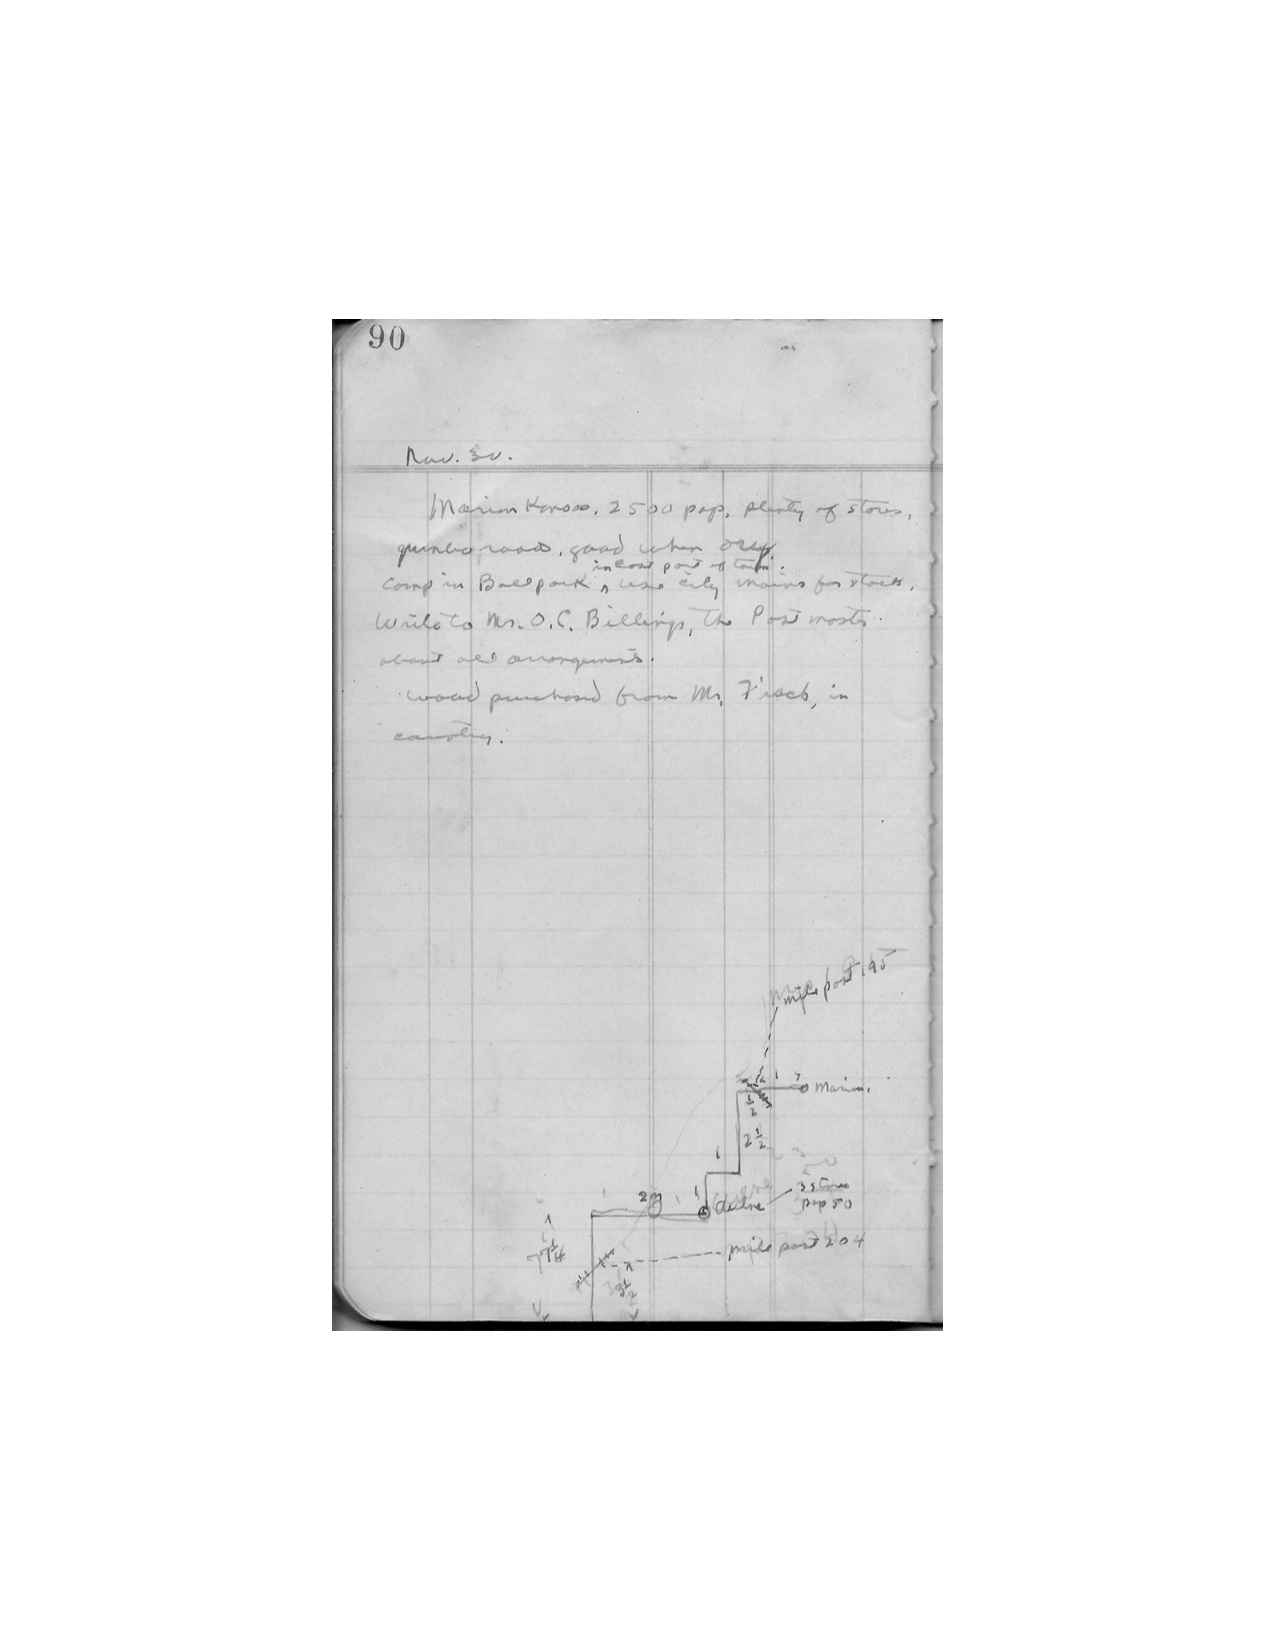 90
Nov. 30.
Marion Kansas. 2500 pop, plenty of stores,
gumbo roads. good when dry.
in East part of town.
Camp in Ball park ^ use city mains for stock.
Write to Mr. O. C. Billings, The Postmaster
about all arrangements.
Wood purchased from Mr. Fisch, in
country.
mile post 195
1
Marion.
1/2
2 1/2
1
1
2m
1
1
3 stores
pop 50
7 1/4
mile post 204
3 1/2